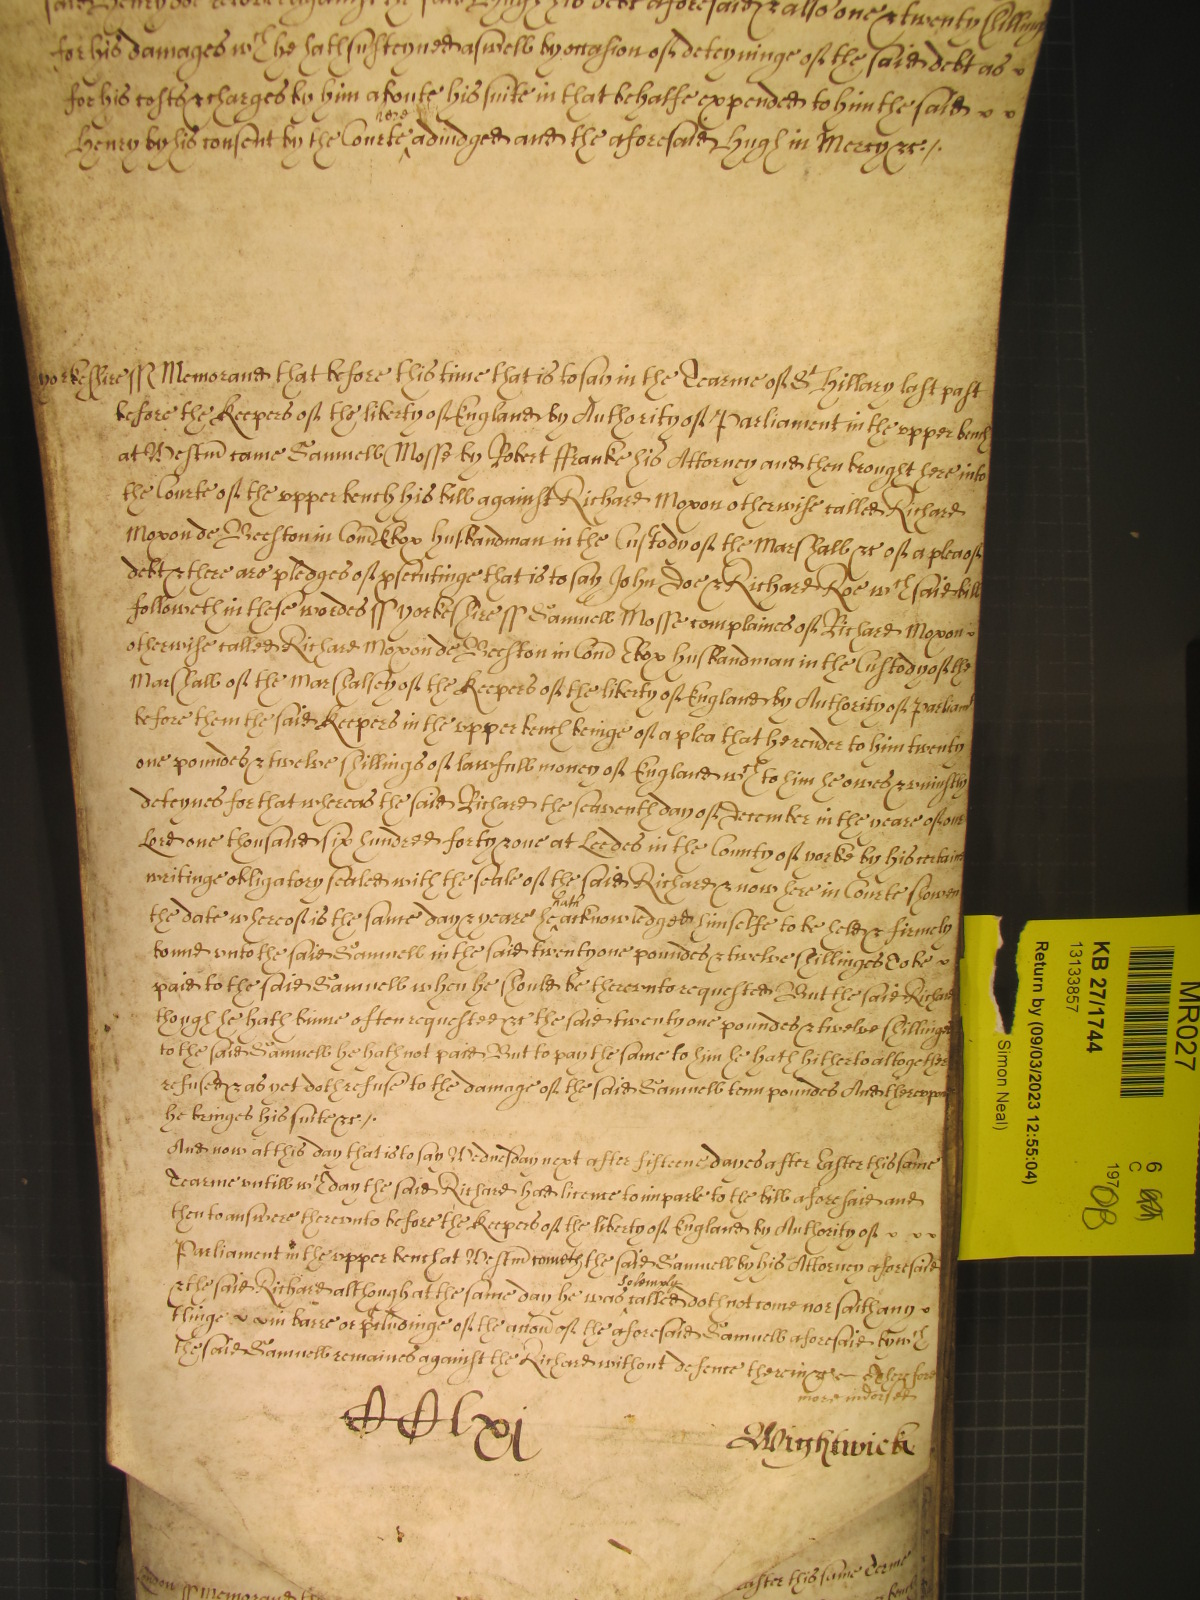 said Henry doe recover against the said Hugh his debt aforesaid & also one & twenty shillings
for his damages wch he hath susteyned aswell by occasion of deteyninge of the said debt as
for his costs & charges by him aboute his suite in that behalfe expended to him the said
Henry by his consent by the Courte here adiudged and the aforesaid Hugh in Mercy &c./.
Yorkeshire ss Memorand that before this time that is to say in the Tearme of St Hillary last past
before the Keepers of the liberty of England by Authority of Parliament in the upper bench
at Westm came Samuell Mosse by Robert ffranke his Attorney and then brought here into
the Courte of the upper bench his bill against Richard Moxon otherwise called Richard
Moxon de Beeston in Com Ebor husbandman in the Custody of the Marshall &c of a plea of
debt & there are pledges of psecutinge that is to say John Doe & Richard Roe wch said bill
followeth in these wordes ss Yorkeshire ss Samuell Mosse complaines of Richard Moxon
otherwise called Richard Moxon de Beeston in Com Ebor husbandman in the Custody of the
Marshall of the Marshalsey of the Keepers of the liberty of England by Authority of Parliamt
before them the said Keepers in the upper bench beinge of a plea that he render to him twenty
one poundes & twelve shillings of lawfull money of England wch to him he owes & uniustly
deteynes for that whereas the said Richard the seaventh day of December in the yeare of our
Lord one thousand six hundred forty & one at Leedes in the County of yorke by his certaine
writinge obligatory sealed with the seale of the said Richard & now here in Courte showen
the date whereof is the same day & yeare he hath acknowledged himselfe to be held & firmely
bound unto the said Samuell in the said twenty one poundes & twelve shillinges To be
paid to the said Samuell when he should be thereunto requested But the said Richard
though he hath binne often requested &c the said twenty one poundes & twelve shillinges
to the said Samuell he hath not paid But to pay the same to him he hath hitherto altogether
refused & as yet doth refuse to the damage of the said Samuell tenn poundes And thereupon
he bringes his suite &c./.
And now at this day that is to say Wednesday next after fifteene dayes after Easter this same
Tearme untill wch day the said Richard had licence to imparle to the bill aforesaid and
then to answere thereunto before the Keepers of the liberty of England by Authority of
Parliament in the upper bench at Westm cometh the said Samuell by his Attorney aforesaid
& the said Richard although at the same day he was solemply called doth not come nor saith any
thinge in barre or pcludinge of the accon of the aforesaid Samuell aforesaid by wch
the said Samuell remaines against the Richard without defence therein &c Therefore
more indorsed
CClxj
Wightwick
London ss Memorand
after this same Terme
MR027
KB 27/1744
13133857
Return by (09/03/2023 12:55:04)
Simon Neal)
6
C
197